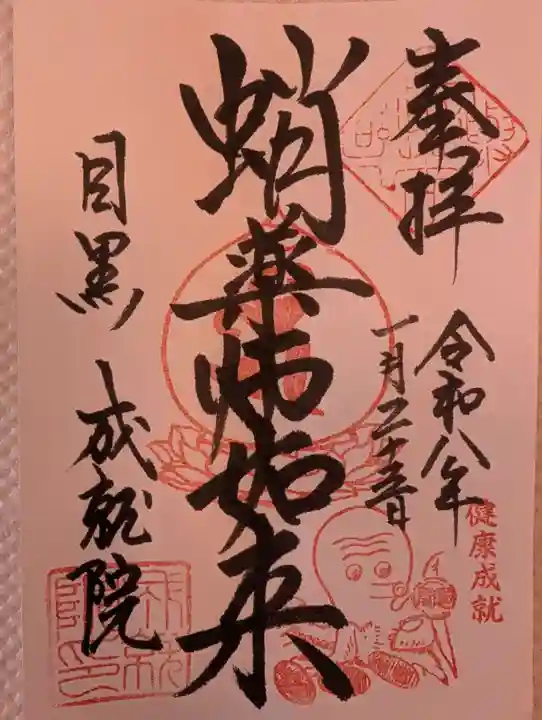 奉拝
令和八年
一月二十三日
健康成就
蛸薬師如来
目黒 成就院